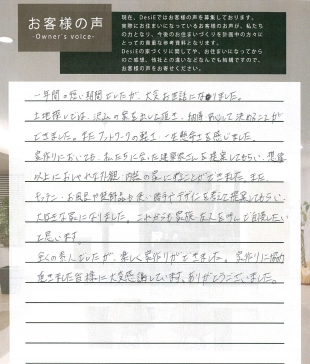 お客様の声
-Owner's voice-
現在、DesiEではお客様の声を募集しております。
実際にお住まいになっているお客様のお声が、私たちの力となり、今後のお住まいづくりを計画中の方々にとっての貴重な参考資料となります。
DesiEの家づくりに関してや、お住まいになってからのご感想、他社との違いなどなんでも結構ですので、お客様の声をお寄せください。
一年間の短い期間でしたが、大変お世話になりました。
土地探しでは、沢山の案を出して頂き、納得、安心して決めることが
できました。またフットワークの軽さ、一生懸命さを感じました。
家作りにおいても、私たちに合った建築家さんを提案してもらい、想像
以上におしゃれな外観、内装の家にすることができました。また、
キッチン・お風呂や使い勝手やデザインを考えて提案してもらい
大好きな家になりました。これからも家族、友人を呼んで自慢したい
と思います。
全くの素人でしたが、楽しく家作りができました。家作りに協力
頂きました皆様に大変感謝しています。ありがとうございました。